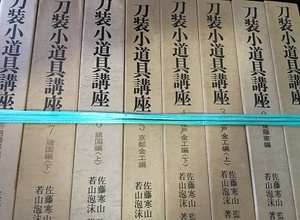 刀装小道具講座
刀装小道具講座
7 諸国編〈下〉
佐藤寒山
若山泡沫
刀装小道具講座
諸国編〈上〉
佐藤寒山
若山泡沫
刀装小道具講座
京都金工編
佐藤寒山
若山泡沫
刀装小道具講座
戸金工編〈下〉
佐藤寒山
若山泡沫
刀装小道具講座
戸金工編〈上〉
佐藤寒山
若山泡沫 監
刀装小道具講座
後藤家編
佐藤寒山
若山泡沫
刀装小道具講座